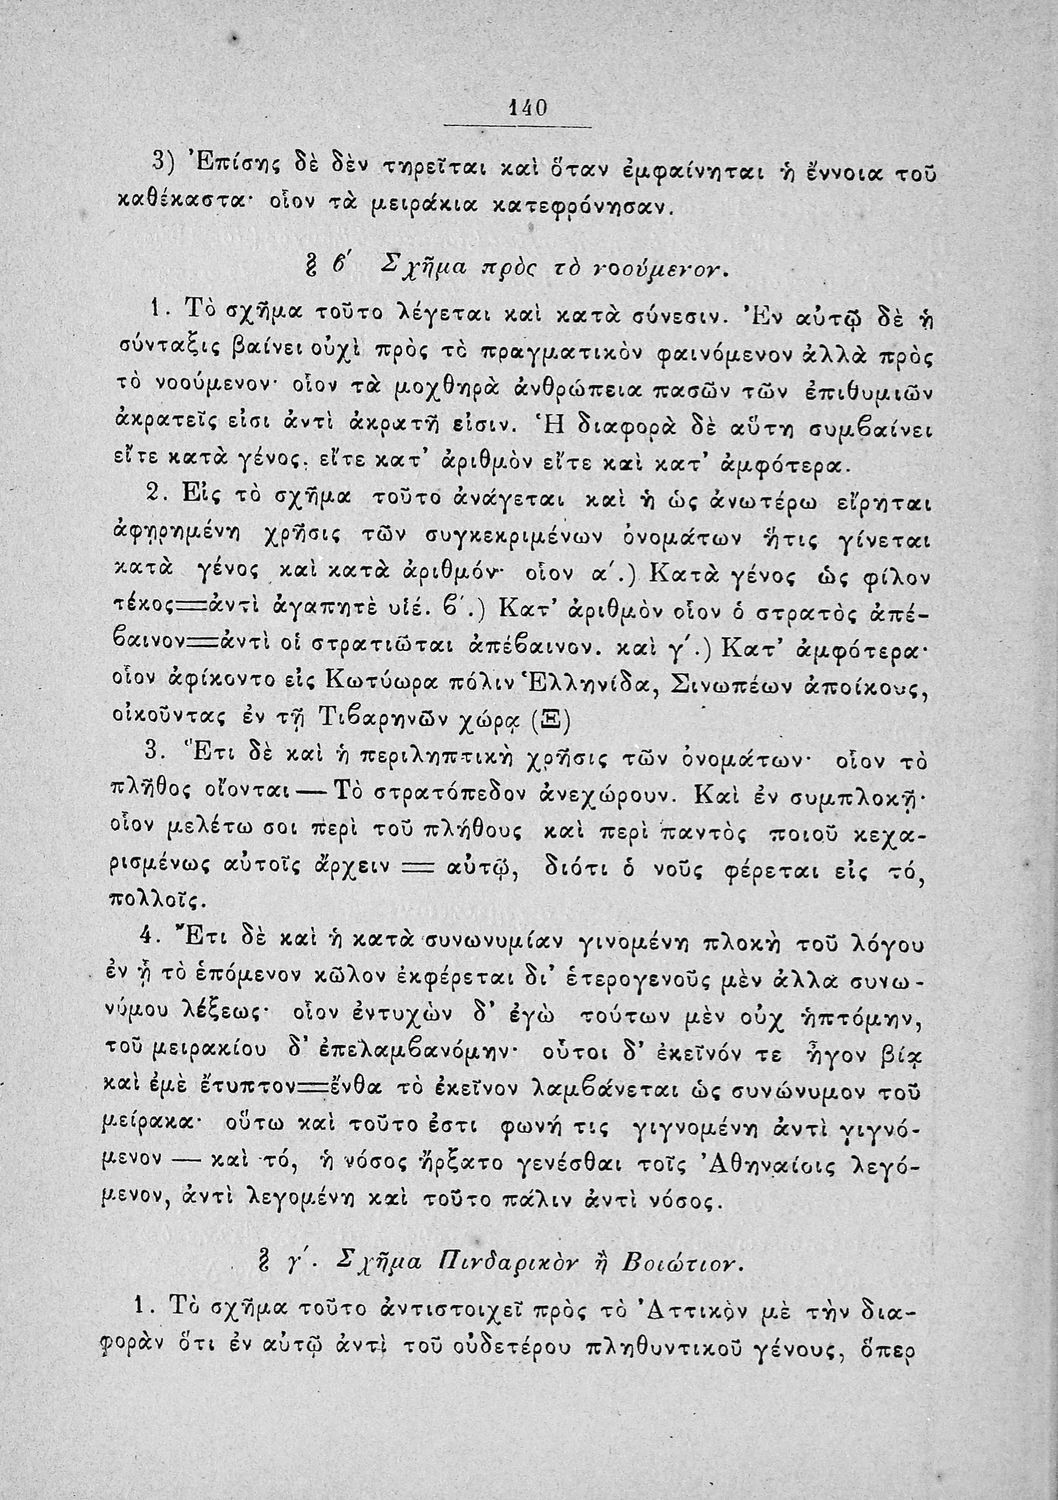 140
3) Ἐπίσης δὲ δὲν τηρεῖται καὶ ὅταν ἐμφαίνηται ἡ ἔννοια τοῦ
καθέκαστα· οἷον τὰ μειράκια κατεφρόνησαν.
§ ϐ΄ Σχῆμα πρὸς τὸ νοούμενον.
1. Τὸ σχῆμα τοῦτο λέγεται καὶ κατὰ σύνεσιν. Ἐν αὐτῷ δὲ ἡ
σύνταξις βαίνει οὐχὶ πρὸς τὸ πραγματικὸν φαινόμενον ἀλλὰ πρὸς
τὸ νοούμενον· οἷον τὰ μοχθηρὰ ἀνθρώπεια πασῶν τῶν ἐπιθυμιῶν
ἀκρατεῖς εἰσι ἀντὶ ἀκρατῆ εἰσιν. Ἡ διαφορὰ δὲ αὕτη συμϐαίνει
εἴτε κατὰ γένος, εἴτε κατ' ἀριθμὸν εἴτε καὶ κατ' ἀμφότερα.
2. Εἰς τὸ σχῆμα τοῦτο ἀνάγεται καὶ ἡ ὡς ἀνωτέρω εἴρηται
ἀφῃρημένη χρῆσις τῶν συγκεκριμένων ὀνομάτων ἥτις γίνεται
κατὰ γένος καὶ κατὰ ἀριθμόν· οἷον α΄.) Κατὰ γένος ὡς φίλον
τέκος=ἀντὶ ἀγαπητὲ υἱέ. ϐ΄.) Κατ' ἀριθμὸν οἷον ὁ στρατὸς ἀπέ-
ϐαινον=ἀντὶ οἱ στρατιῶται ἀπέϐαινον. καὶ γ΄.) Κατ' ἀμφότερα·
οἷον ἀφίκοντο εἰς Κωτύωρα πόλιν Ἑλληνίδα, Σινωπέων ἀποίκους,
οἰκοῦντας ἐν τῇ Τιϐαρηνῶν χώρᾳ (Ξ)
3. Ἔτι δὲ καὶ ἡ περιληπτικὴ χρῆσις τῶν ὀνομάτων· οἷον τὸ
πλῆθος οἴονται — Τὸ στρατόπεδον ἀνεχώρουν. Καὶ ἐν συμπλοκῇ·
οἷον μελέτω σοι περὶ τοῦ πλήθους καὶ περὶ παντὸς ποιοῦ κεχα-
ρισμένως αὐτοῖς ἄρχειν = αὐτῷ, διότι ὁ νοῦς φέρεται εἰς τό,
πολλοῖς.
4. Ἔτι δὲ καὶ ἡ κατὰ συνωνυμίαν γινομένη πλοκὴ τοῦ λόγου
ἐν ᾗ τὸ ἑπόμενον κῶλον ἐκφέρεται δι' ἑτερογενοῦς μὲν ἀλλὰ συνω-
νύμου λέξεως· οἷον ἐντυχὼν δ' ἐγὼ τούτων μὲν οὐχ ἡπτόμην,
τοῦ μειρακίου δ' ἐπελαμϐανόμην· οὗτοι δ' ἐκεῖνόν τε ἦγον βίᾳ
καὶ ἐμὲ ἔτυπτον=ἔνθα τὸ ἐκεῖνον λαμϐάνεται ὡς συνώνυμον τοῦ
μείρακα· οὕτω καὶ τοῦτο ἐστι φωνή τις γιγνομένη ἀντὶ γιγνό-
μενον — καὶ τό, ἡ νόσος ἤρξατο γενέσθαι τοῖς Ἀθηναίοις λεγό-
μενον, ἀντὶ λεγομένη καὶ τοῦτο πάλιν ἀντὶ νόσος.
§ γ΄. Σχῆμα Πινδαρικὸν ἢ Βοιώτιον.
1. Τὸ σχῆμα τοῦτο ἀντιστοιχεῖ πρὸς τὸ Ἀττικὸν μὲ τὴν δια-
φορὰν ὅτι ἐν αὐτῷ ἀντὶ τοῦ οὐδετέρου πληθυντικοῦ γένους, ὅπερ